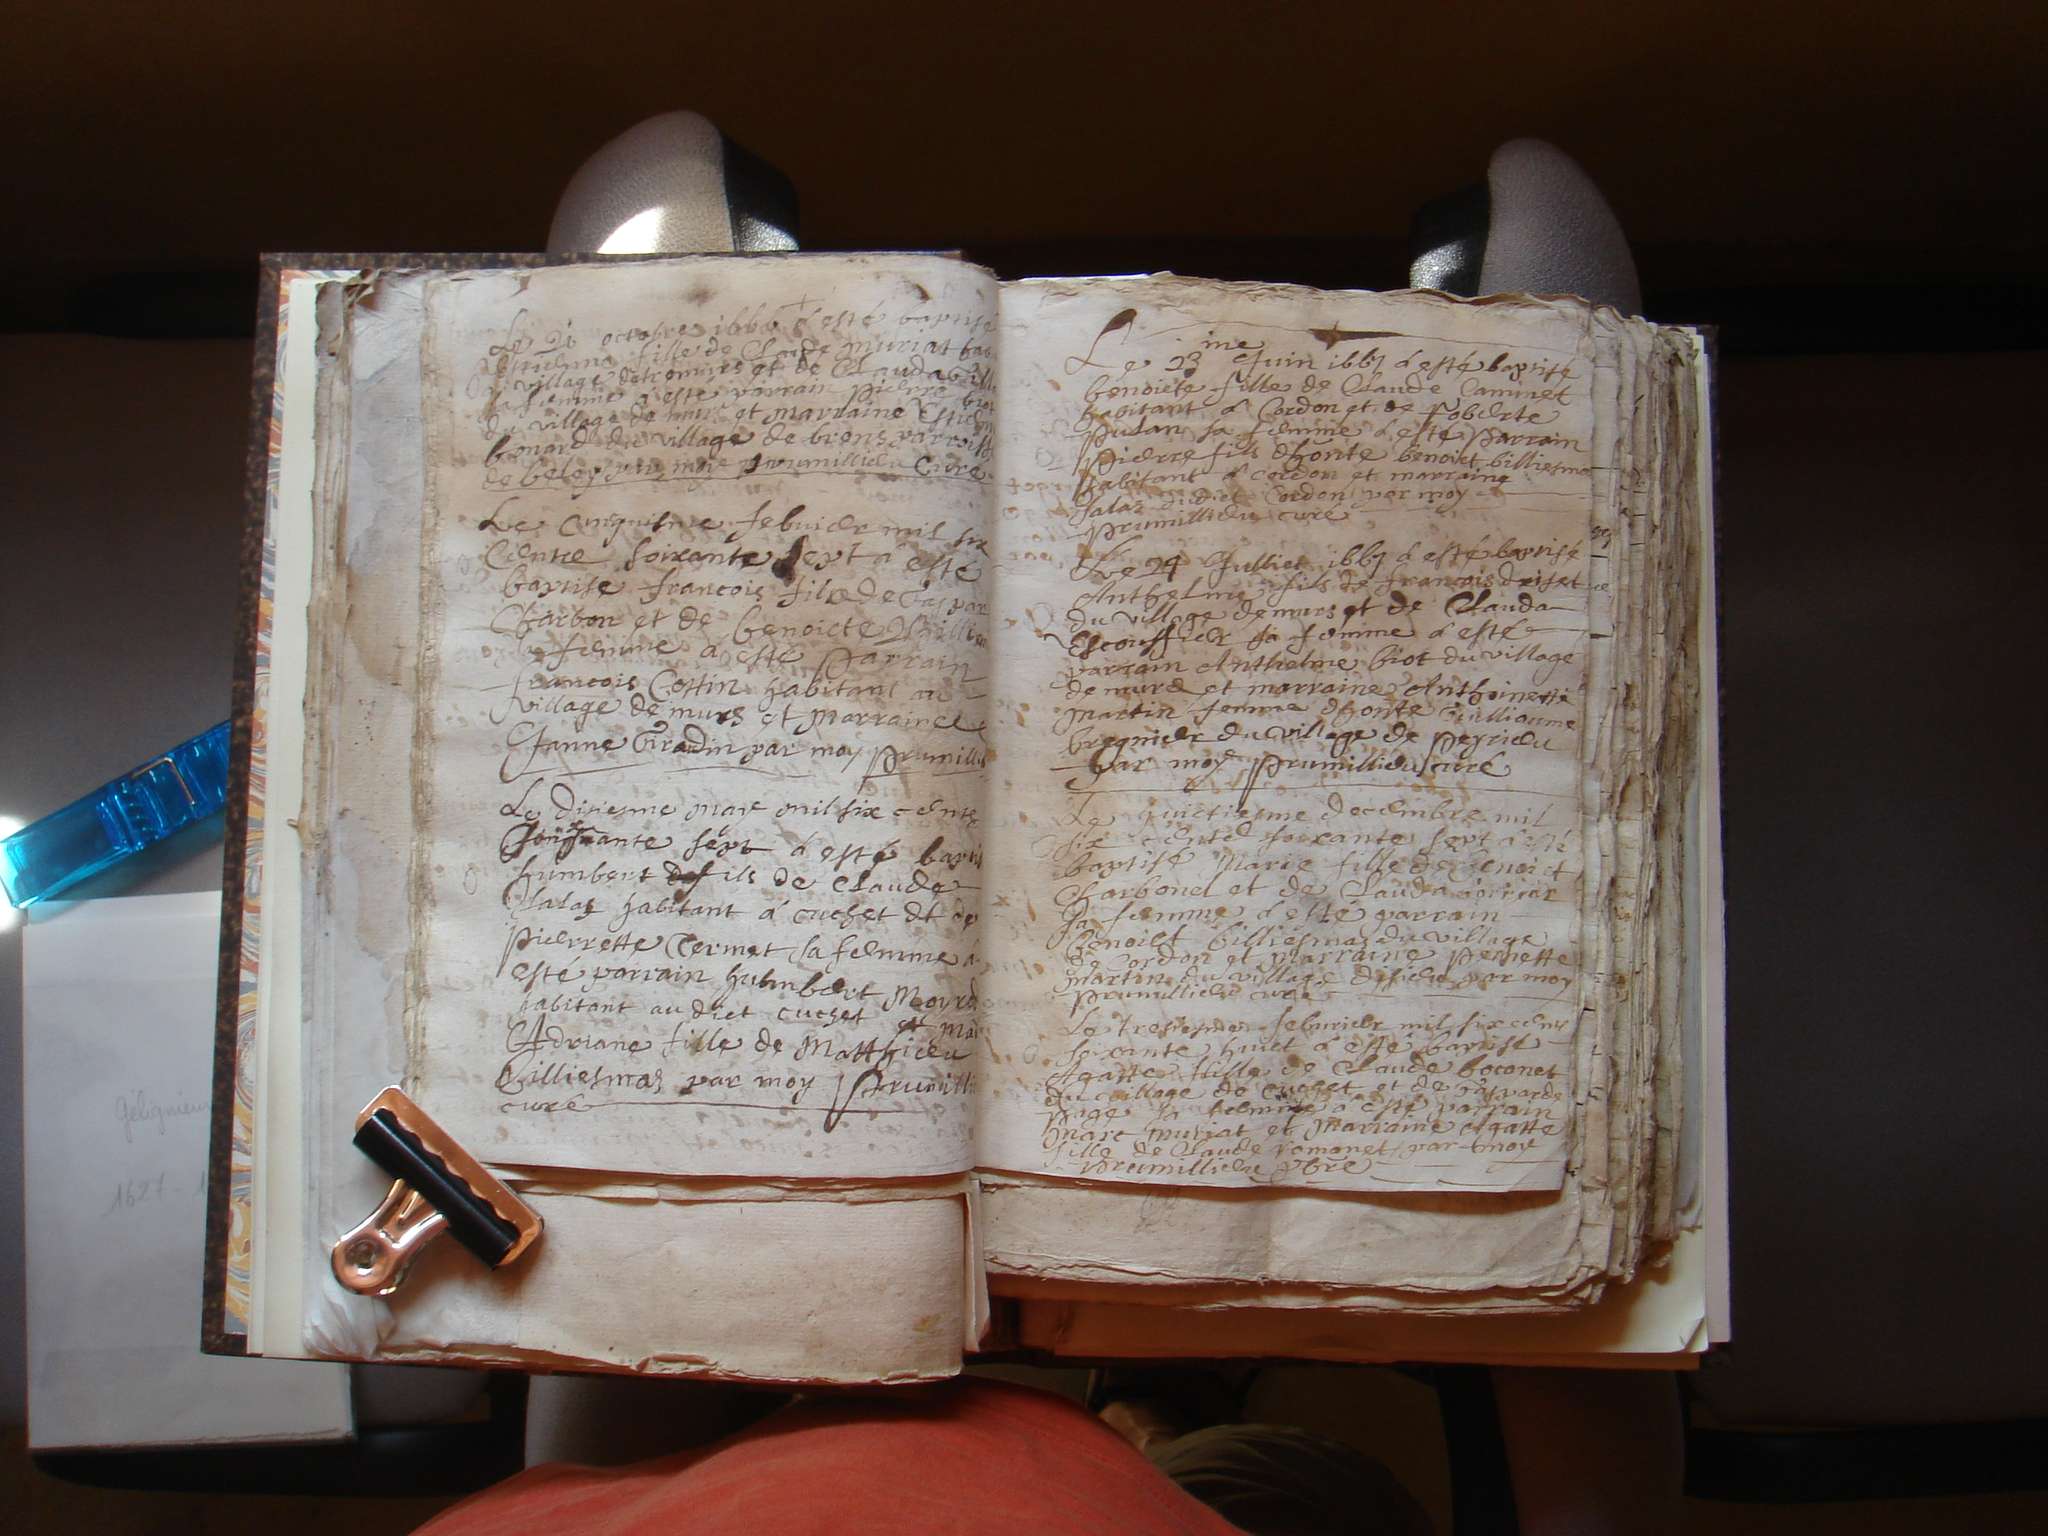 Le 21 octobre 1666 a esté baptisé
fille de Claude Muriat
village de murs et de Clauda
sa femme a esté parrain pierre biot
du village de murs et marraine
bonard du village de brens parroisse
de beley par moy prumillieu Curé
Le cinquiesme febvier mil six
Centz soixante sept a esté
baptise francois filz de Gaspar
Charbon et de benoicte
sa femme a esté parrain
francois Costin habitant au
village de murs et marraine
Janne Gradin par moy prumillieu
Le disiesme mar mil six centz
soixante sept a esté
humbert fils de Claude
Jalaz habitant a cuchet et de
pierrette Termet sa femme a
esté parrain humbert
habitant au diet cuchet et
Adriane fille de Matthieu
billiesmaz par moy prumillieu
curé
Le 23 ine Juin 1667 a esté baptisé
benoicte fille de Claude Caminet
habitant a Cordon et de
sa femme a esté parrain
pierre fils d'honte benoict billiesmaz
habitant a cordon et marraine
Jalaz dudict Cordon par moy
prumillieu curé
Le 24 Julliet 1667 a esté baptisé
Anthelme fils de francois
du village de murs et de Clauda
Escouffier sa femme a esté
parrain Anthelme biot du village
de murs et marraine Anthoinette
martin femme d'honte Guilliaume
bregnier du village de peyrieu
par moy prumillieu curé
Le huictiesme decembre mil
six centz soixante sept a esté
baptisé Marie fille de benoict
Charbonel et de Clauda
sa femme a esté parrain
benoict billiesmaz du village
de Cordon et marraine pernette
martin du village par moy
prumillieu curé
Le tresiesme febvrier mil six centz
soixante huict a esté baptise
Agatte fille de Claude boconet
du village de cuchet et de
page sa femme a esté parrain
marc muriat et marraine Agatte
fille de Claude romanet par moy
prumillieu pbre
Géligneux
1627 -